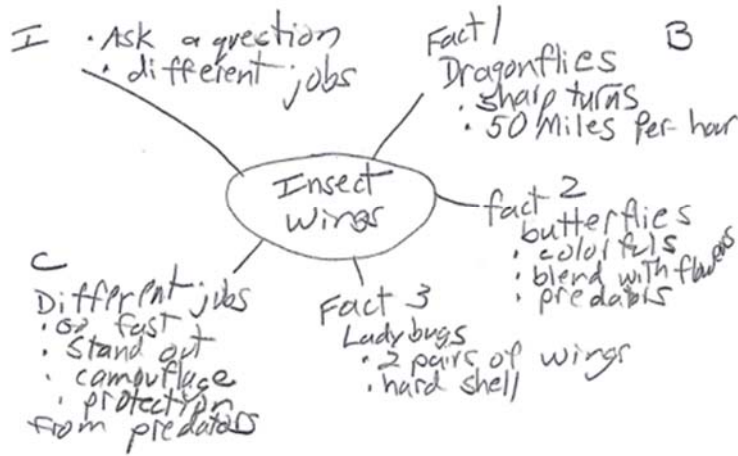 I
· Ask a question
· different jobs
B
Fact 1
Dragonflies
· sharp turns
· 50 Miles Per hour
Insect
wings
fact 2
butterflies
· colorfuls
· blend with flowers
· predators
Fact 3
Ladybugs
· 2 pairs of wings
· hard shell
C
Different jobs
· go fast
· Stand out
· camouflage
· protection
from predators